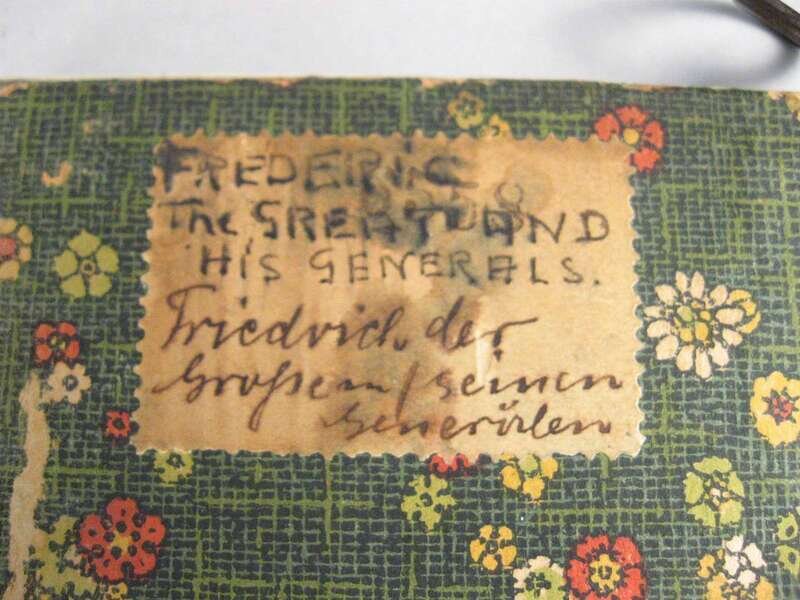 FREDERIC
The GREAT AND
HIS GENERALS.
Friedrich der
Große m/seinen
Generälen